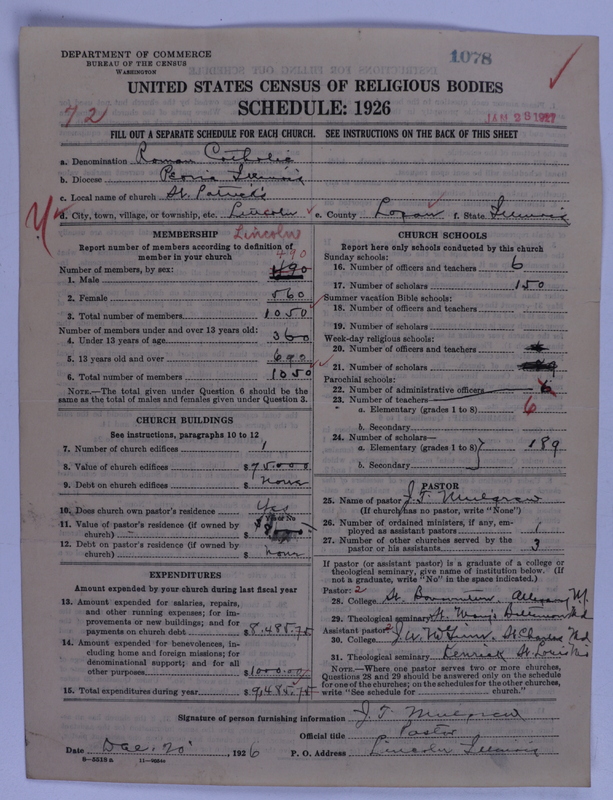 DEPARTMENT OF COMMERCE
BUREAU OF THE CENSUS
WASHINGTON
1078
UNITED STATES CENSUS OF RELIGIOUS BODIES
SCHEDULE: 1926
72
JAN 28 1927
FILL OUT A SEPARATE SCHEDULE FOR EACH CHURCH. SEE INSTRUCTIONS ON THE BACK OF THIS SHEET
a. Denomination Roman Catholic
b. Diocese Peoria Illinois
c. Local name of church St. Patrick's
d. City, town, village, or township, etc. Lincoln e. County Logan f. State Illinois
MEMBERSHIP Lincoln
Report number of members according to definition of member in your church
490
Number of members, by sex:
1. Male 490
2. Female 560
3. Total number of members 1050
Number of members under and over 13 years old:
4. Under 13 years of age 360
5. 13 years old and over 690
6. Total number of members 1050
NOTE.—The total given under Question 6 should be the same as the total of males and females given under Question 3.
CHURCH BUILDINGS
See instructions, paragraphs 10 to 12
7. Number of church edifices 1
8. Value of church edifices $75.000
9. Debt on church edifices $ none
10. Does church own pastor's residence? Yes
Yes or No
11. Value of pastor's residence (if owned by church) $
12. Debt on pastor's residence (if owned by church) $ none
EXPENDITURES
Amount expended by your church during last fiscal year
13. Amount expended for salaries, repairs, and other running expenses; for improvements or new buildings; and for payments on church debt $8.485.75
14. Amount expended for benevolences, including home and foreign missions; for denominational support; and for all other purposes $1000.00
15. Total expenditures during year $9,485.75
CHURCH SCHOOLS
Report here only schools conducted by this church
Sunday schools:
16. Number of officers and teachers 6
17. Number of scholars 150
Summer vacation Bible schools:
18. Number of officers and teachers
19. Number of scholars
Week-day religious schools:
20. Number of officers and teachers
21. Number of scholars
Parochial schools:
22. Number of administrative officers 6
23. Number of teachers—
a. Elementary (grades 1 to 8) 6
b. Secondary
24. Number of scholars—
a. Elementary (grades 1 to 8) 189
b. Secondary
PASTOR
25. Name of pastor J. F. Mulgrew
(If church has no pastor, write "None")
26. Number of ordained ministers, if any, employed as assistant pastors 1
27. Number of other churches served by the pastor or his assistants 3
If pastor (or assistant pastor) is a graduate of a college or theological seminary, give name of institution below. (If not a graduate, write "No" in the space indicated.)
Pastor: 2
28. College St. Bonaventure Allegany N.Y.
29. Theological seminary St. Mary's Baltimore Md
Assistant pastor: 2
30. College St Charles
31. Theological seminary Kenrick St. Louis
NOTE.—Where one pastor serves two or more churches, Questions 28 and 29 should be answered only on the schedule for one of the churches; on the schedules for the other churches, write "See schedule for church."
Signature of person furnishing information J. F. Mulgrew
Official title Pastor
Date Dec. 20, 1926 P. O. Address Lincoln Illinois
8—5318 a